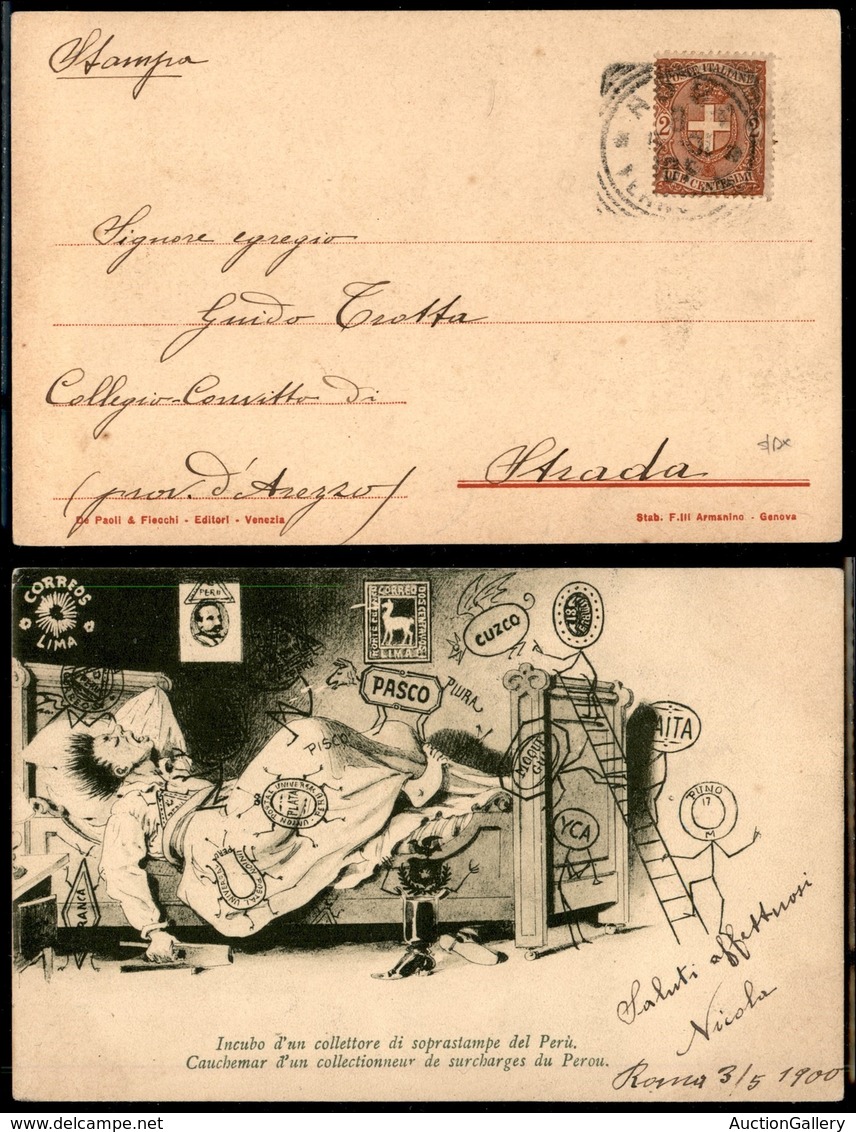 Stampa
POSTE ITALIANE
2 2
DUE CENTESIMI
Signore egregio
Guido Trotta
Collegio-Convitto di
Strada
(prov. d'Arezzo)
De Paoli & Fiecchi - Editori - Venezia
Stab. F.lli Armanino - Genova
CORREOS
LIMA
PERU
CORREO
LIMA
CUZCO
18
PASCO
PIURA
PISCO
PLATA
YCA
PUNO
17
M
FRANCA
Saluti affettuosi
Nicola
Incubo d'un collettore di soprastampe del Perù.
Cauchemar d'un collectionneur de surcharges du Perou.
Roma 3/5 1900
AuctionGallery